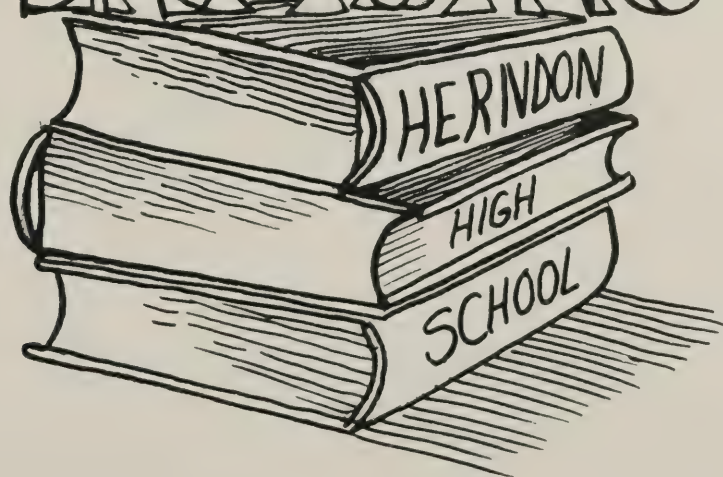 HERNDON
HIGH
SCHOOL